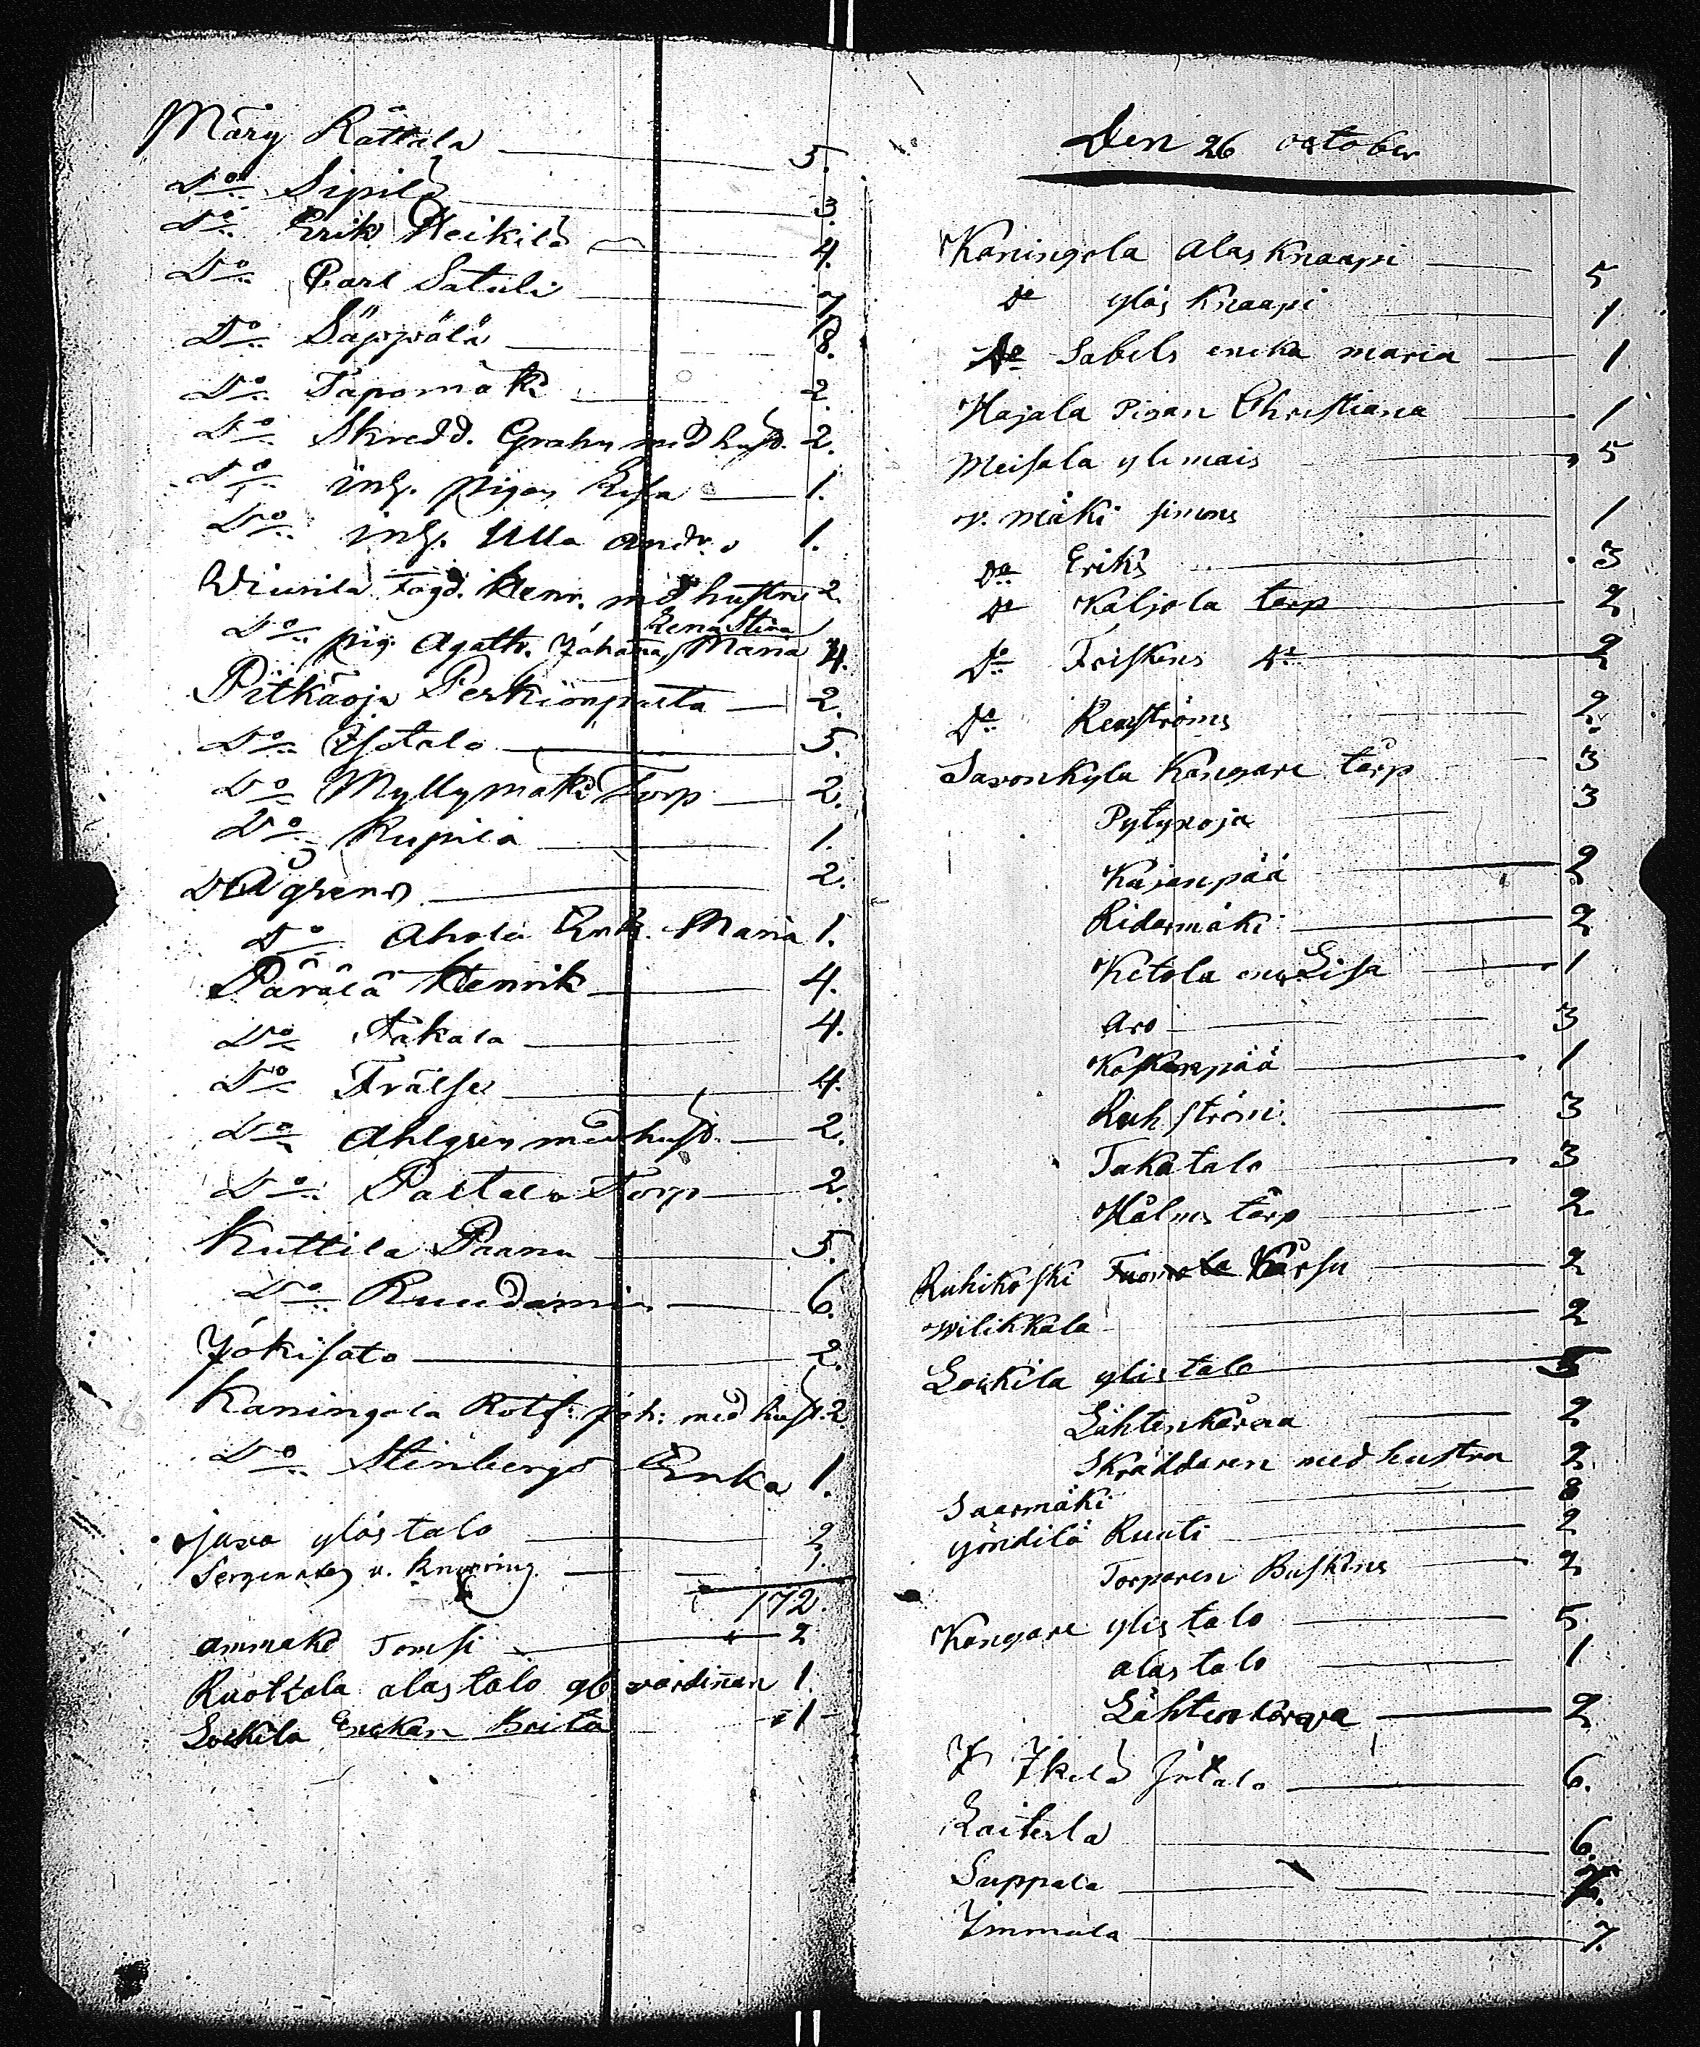 Märy Råttala 5.
Do Sipilä 3.
Do Erik Heikilä 4.
Do Carl Satuli 7
Do Säppälä 8.
Do Tapomäki 2
Do Skredd. Grahn med hust. 2.
Do inh. pigan Lisa 1.
Do inh. Ulla Andr. 1.
Wiurila Fogd. Henr. med hustru 2.
Lena Stina
Do pig. Agath. Johanna, Maria 4.
Pitkäoja Perkiönpuita 2.
Do Isotalo 5.
Do Myllymäki Torp 2.
Do Rupila 1.
Do Ågrens 2.
Do Ahola Erik. Maria 1.
Pärälä Henrik 4.
Do Takala 4.
Do Frälse 4.
Do Ahlgren med hust. 2.
Do Paltala Torp 2.
Kuttila Paanu 5.
Do Ruudami 6.
Jokisato 2.
Kaningola Rotf: joh: med hust. 2
Do Stinbergs Erika 1.
juva ylöstalo 2
Sergeanten v. Knorring 1.
172.
ammakö Tomsi 2
Ruotkala alastalo gl värdinan 1.
Loukila Enckan Brita 1
Den 26 october
Koningola alas Knaapi 5
do ylös Knaapi 1
do Sabels encka maria 1
Hajala Pigan Christiana 1
Meisala ylimais 5
v. mäki simons 1
do Eriks 3
do Kaljola torp 2
do Friskens do 2
do Renströms 2.
Savonkyla Kangare torp 3
Pytyxoja 3
Kajanpää 2
Ridarmäki 2
Ketola enk Lisa 1
Aro 3
Koskenpää 1
Ruhström 3
Takatalo 3
Holms torp 2
Ruhikoski Tuomola Kärsu 2
wilikkala 2
Loukila ylistalo 5
Lähtenkårva 2
Skräddaren med hustru 2
Saarmäki 8
yöndilä Ruuti 2
Torparen Buskens 2
Kangare ylistalo 5
alastalo 1
Lähtenkorva 2
Ikelä Jutalo 6.
Laiterla 6.
Suppala 7.
Ymmula 7.